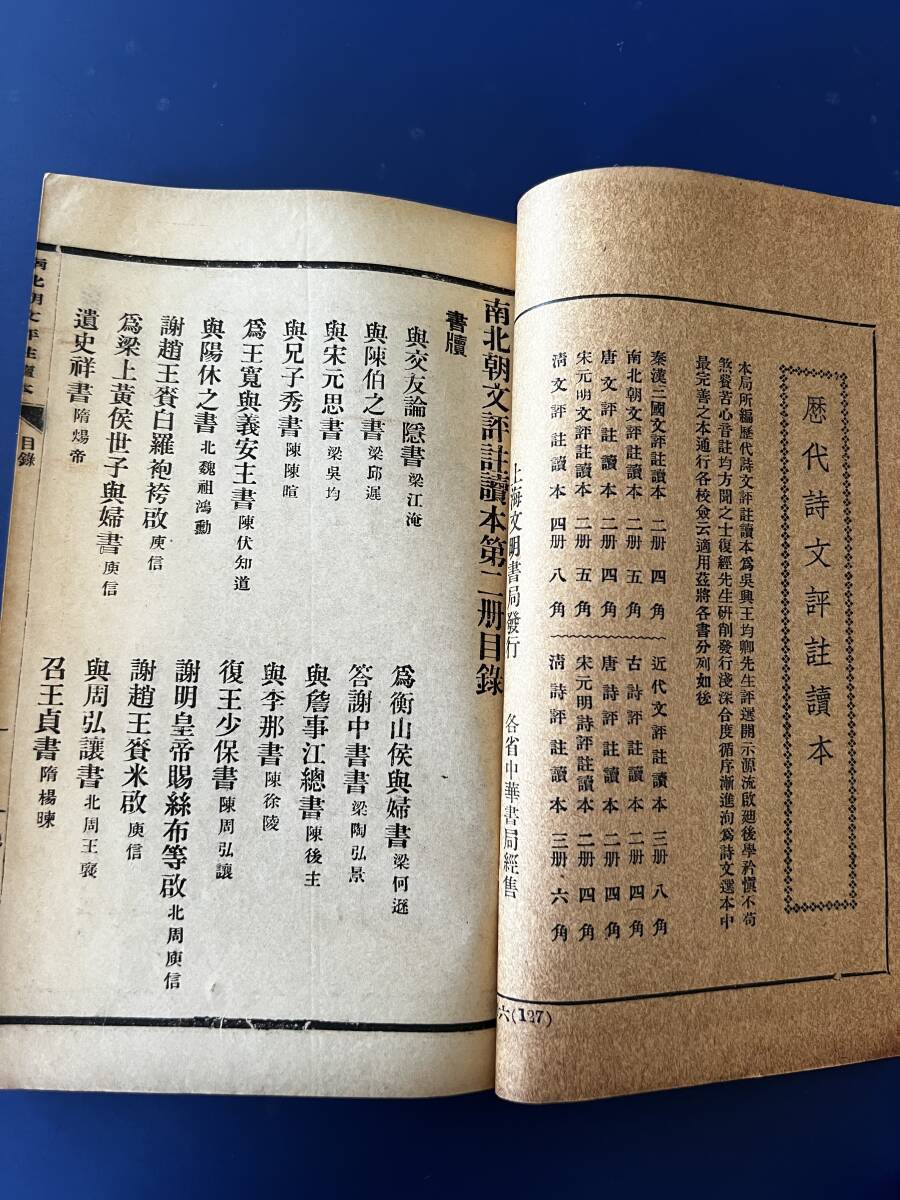 歷代詩文評註讀本
本局所編歷代詩文評註讀本爲吳興王均卿先生評選開示源流啟廸後學矜愼不苟
煞費苦心音註均方聞之士復經先生研削發行淺深合度循序漸進洵爲詩文選本中
最完善之本通行各校僉云適用茲將各書分列如後
秦漢三國文評註讀本 二册 四角 近代文評註讀本 三册 八角
南北朝文評註讀本 二册 五角 古詩評註讀本 二册 四角
唐文評註讀本 二册 四角 唐詩評註讀本 二册 四角
宋元明文評註讀本 二册 五角 宋元明詩評註讀本 二册 四角
清文評註讀本 四册 八角 清詩評註讀本 三册 六角
上海文明書局發行 各省中華書局經售
六(127)
南北朝文評註讀本第二册目錄
書牘
與交友論隱書 梁江淹 爲衡山侯與婦書 梁何遜
與陳伯之書 梁邱遲 答謝中書書 梁陶弘景
與宋元思書 梁吳均 與詹事江總書 陳後主
與兄子秀書 陳陳暄 與李那書 陳徐陵
爲王寬與義安主書 陳伏知道 復王少保書 陳周弘讓
與陽休之書 北魏祖鴻勳 謝明皇帝賜絲布等啟 北周庾信
謝趙王賚白羅袍袴啟 庾信 謝趙王賚米啟 庾信
爲梁上黃侯世子與婦書 庾信 與周弘讓書 北周王襃
遺史祥書 隋煬帝 召王貞書 隋楊暕
南北朝文評註讀本 目錄